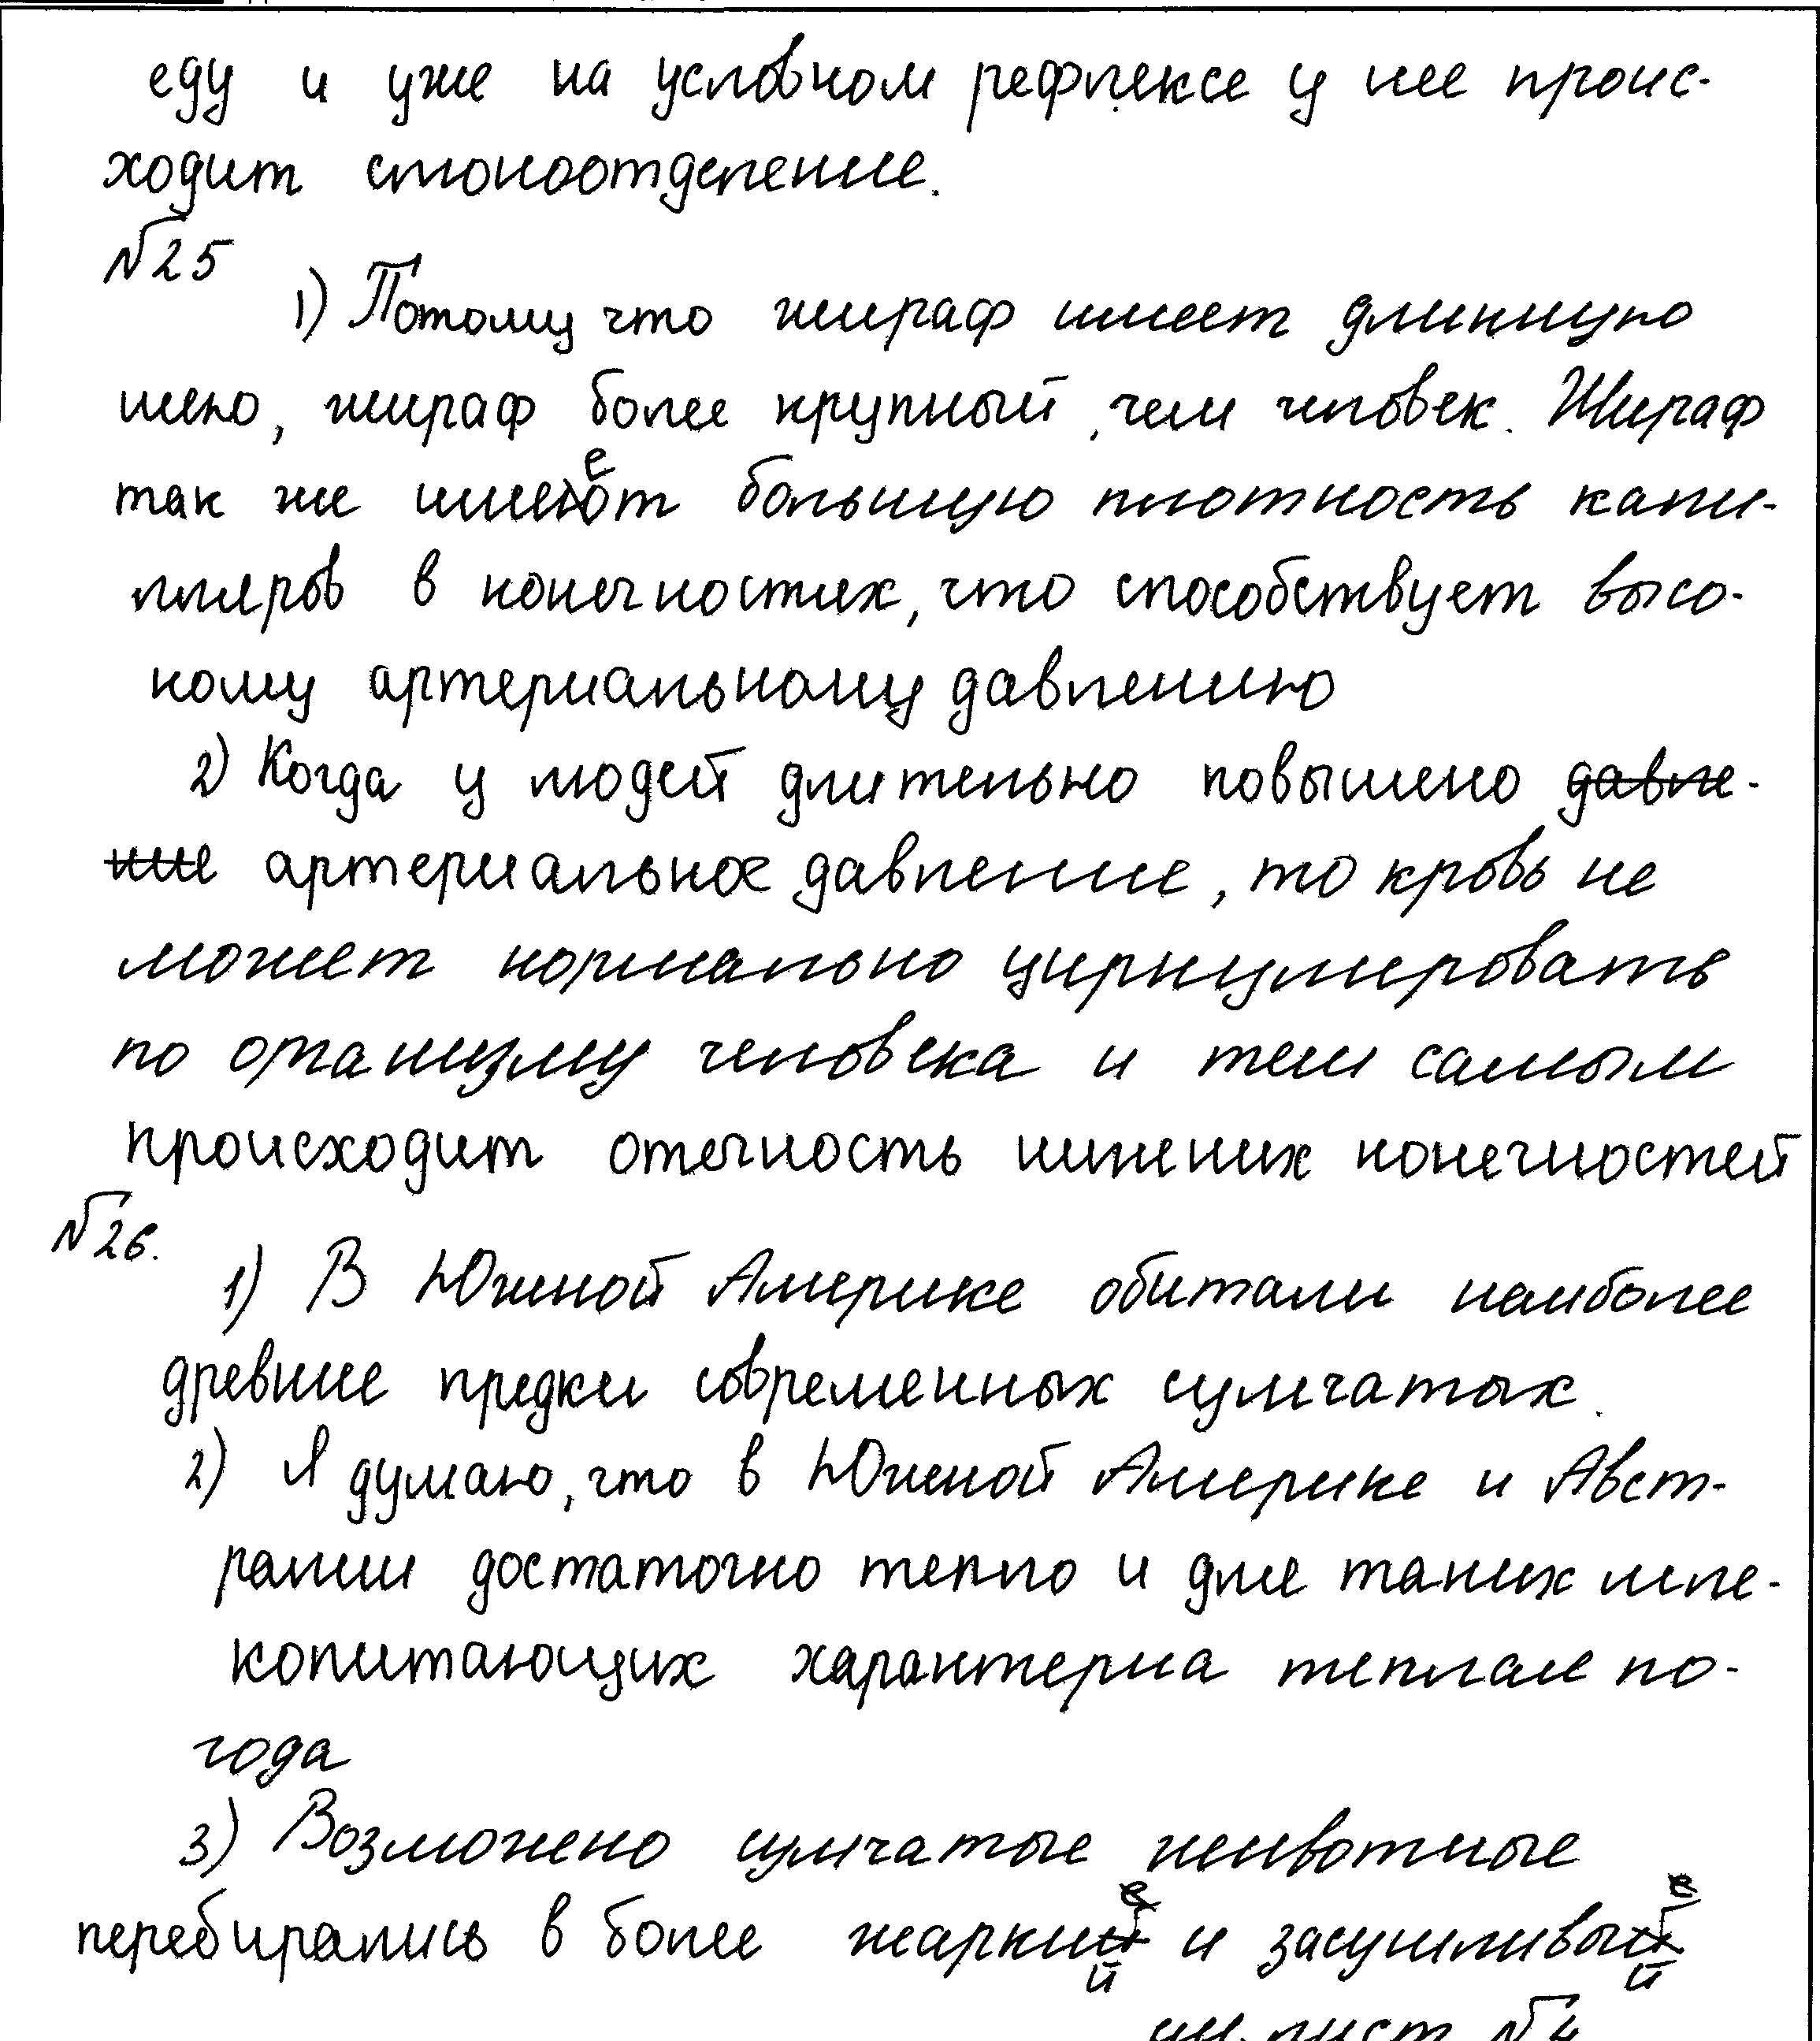 еду и уже на условном рефлексе у нее проис-
ходит слюноотделение.
№25
1) Потому что жираф имеет длинную
шею, жираф более крупный, чем человек. Жираф
так же имеет большую плотность капи-
лляров в конечностях, что способствует высо-
кому артериальному давлению
2) Когда у людей длительно повышено давле-
ние артериальное давление, то кровь не
может нормально циркулировать
по организму человека и тем самым
происходит отечность нижних конечностей
№26.
1) В Южной Америке обитали наиболее
древние предки современных сумчатых.
2) Я думаю, что в Южной Америке и Авст-
ралии достаточно тепло и для таких мле-
копитающих характерна теплая по-
года
3) Возможно сумчатые животные
перебирались в более жаркий и засушливый
см. лист №4